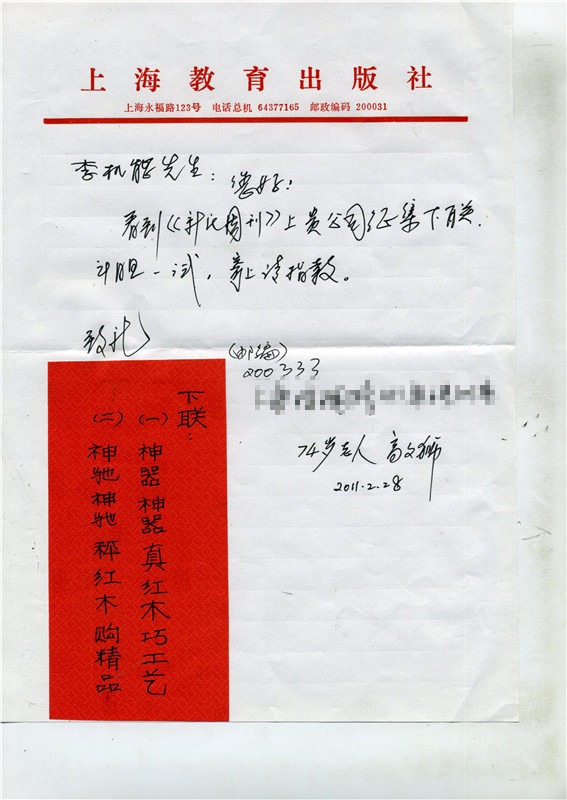 上海教育出版社
上海永福路123号 电话总机 64377165 邮政编码 200031
李机能先生：您好！
看到《新民周刊》上贵公司征集下联，
斗胆一试，寄上请指教。
致礼
（邮编）
200333
74岁老人 高文
2011.2.28
下联：
（一）神器神器真红木巧工艺
（二）神驰神驰 红木购精品